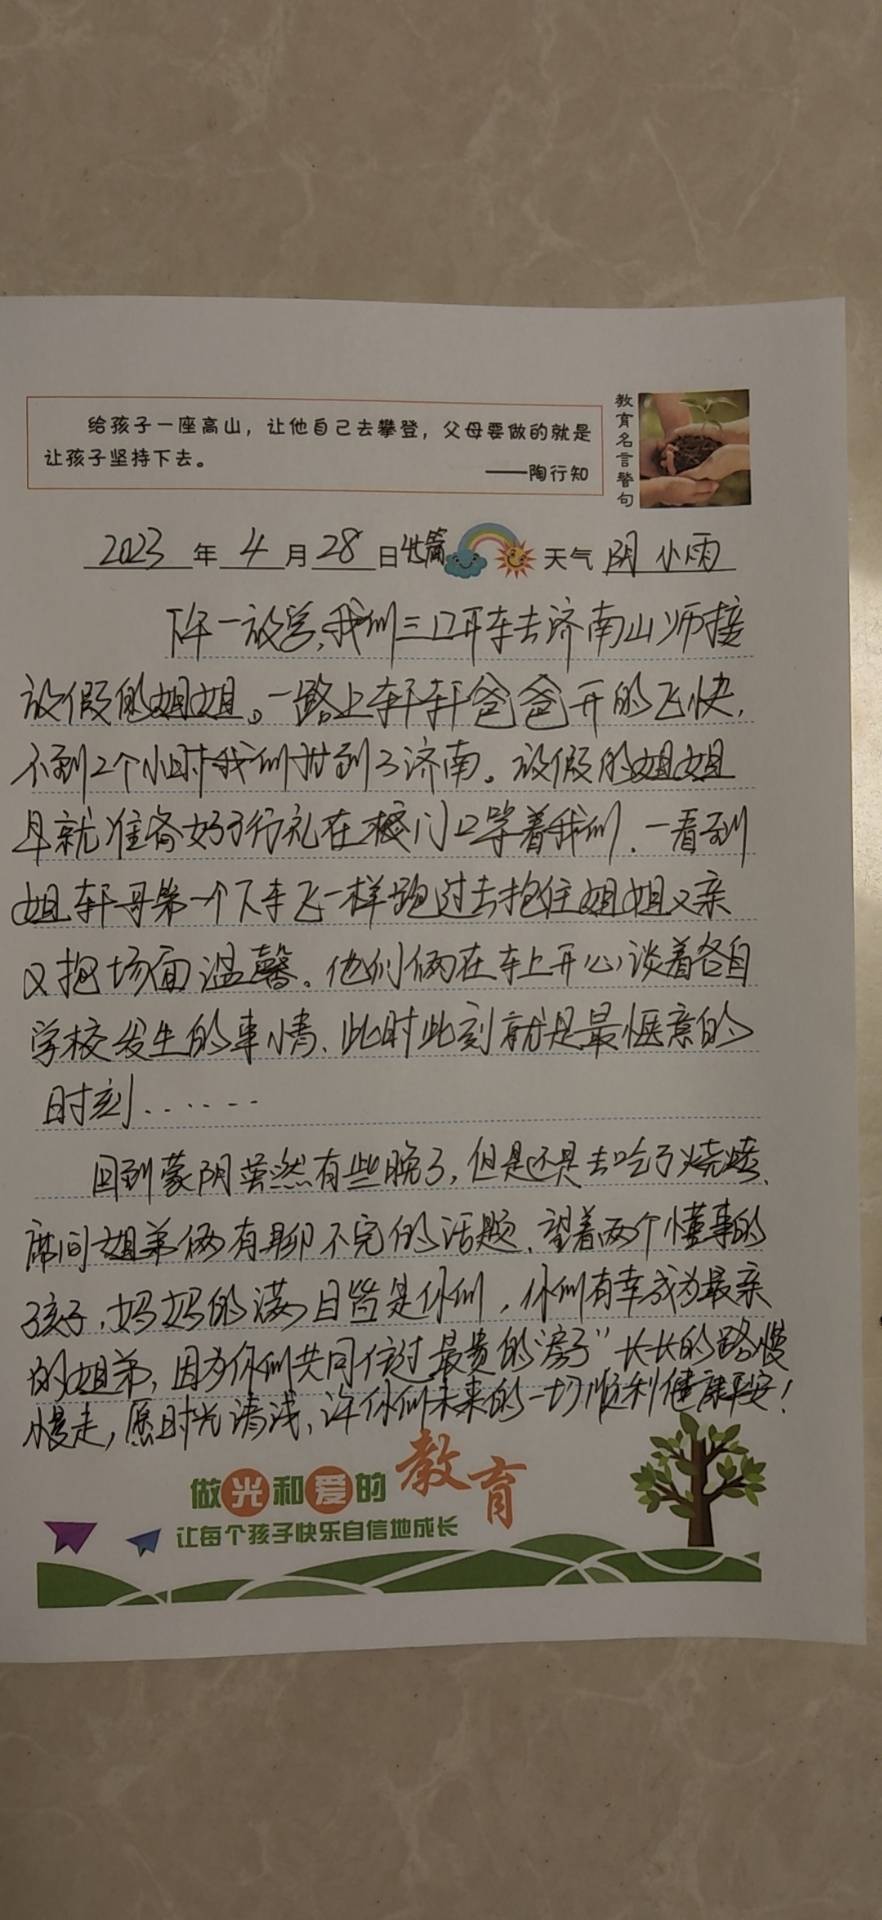 给孩子一座高山，让他自己去攀登，父母要做的就是
让孩子坚持下去。
——陶行知
教育名言警句
2023年4月28日 天气 阴 小雨
下午一放学，我们三口开车去济南山师接
放假的姐姐。一路上轩轩爸爸开的飞快，
不到2个小时我们就到了济南。放假的姐姐
早就准备好了行礼在校门口等着我们，一看到
姐轩哥第一个下车飞一样跑过去抱住姐姐又亲
又抱场面温馨。他们俩在车上开心谈着各自
学校发生的事情、此时此刻就是最惬意的
时刻......
回到蒙阴虽然有些晚了，但是还是去吃了烧烤、
席间姐弟俩有聊不完的话题、望着两个懂事的
孩子，妈妈的满目皆是你们，你们有幸成为最亲
的姐弟，因为你们共同住过最贵的“房子”长长的路慢
慢走，愿时光清浅、许你们未来的一切顺利健康平安！
做光和爱的教育
让每个孩子快乐自信地成长